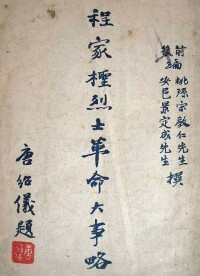 前編 桃源宋教仁先生
後編 安邑景定成先生 撰
程家檉烈士革命大事略
唐紹儀題